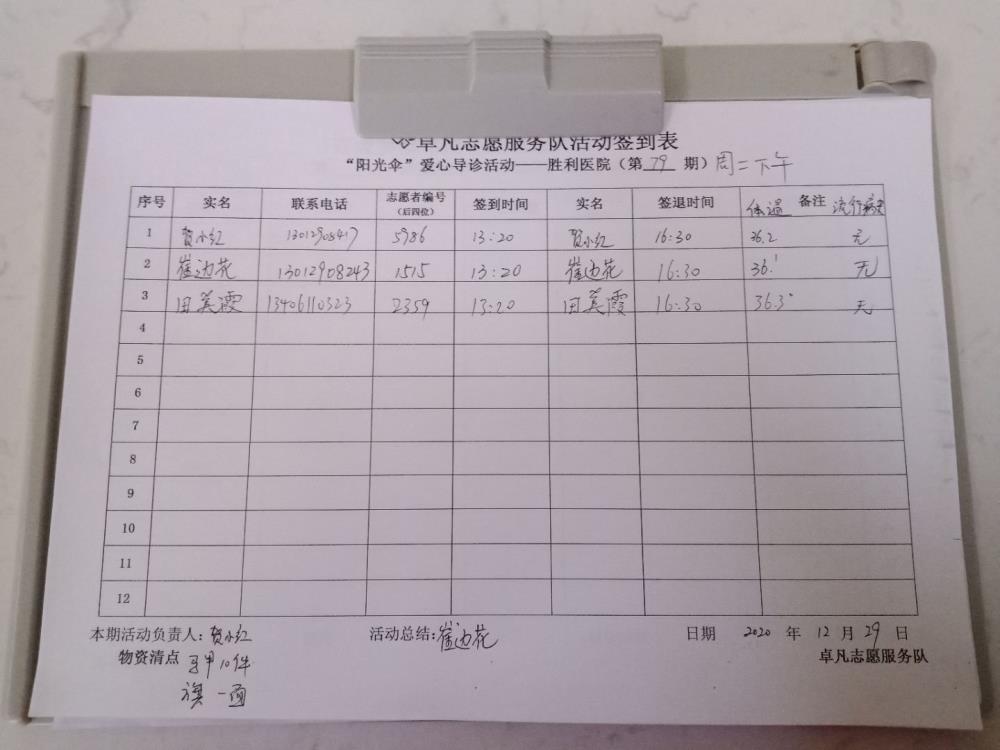 卓凡志愿服务队活动签到表
“阳光伞”爱心导诊活动——胜利医院（第 79 期）周二下午
序号 实名 联系电话 志愿者编号（后四位） 签到时间 实名 签退时间 体温 备注 流行病史
1 贺小红 13012908417 5986 13:20 贺小红 16:30 36.2 无
2 崔边花 13012908243 1515 13:20 崔边花 16:30 36.1 无
3 田美霞 13406110323 2359 13:20 田美霞 16:30 36.3° 无
4
5
6
7
8
9
10
11
12
本期活动负责人：贺小红 活动总结：崔边花 日期 2020 年 12 月 29 日
物资清点 马甲10件 卓凡志愿服务队
旗一面